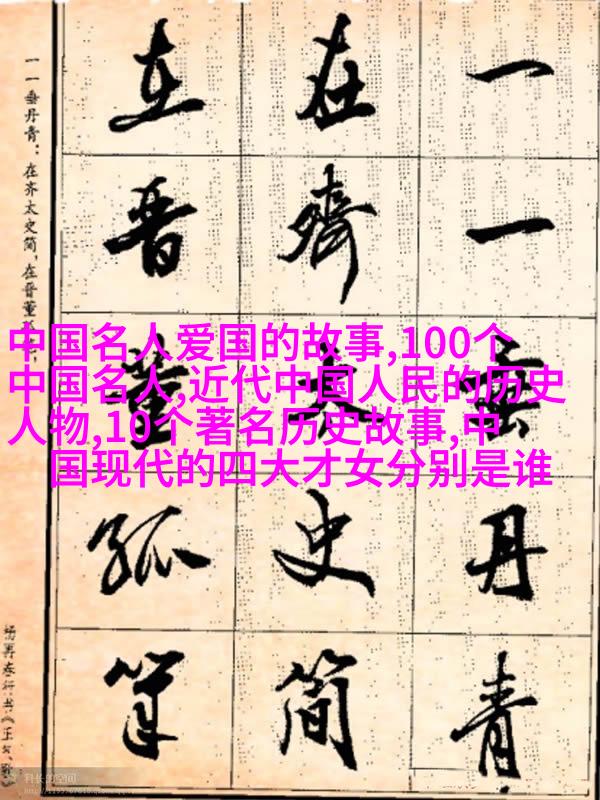 一一垂丹青
在齊太史简
在晋董孤筆
一一垂丹青：在齐太史简，在晋董
杨再春行书《正气歌
中国名人爱国的故事,100个
中国名人,近代中国人民的历史
人物,10个著名历史故事,中
国现代的四大才女分别是谁
科长的空间